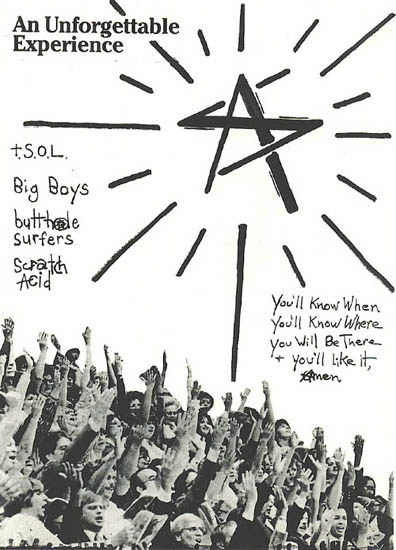 An Unforgettable
Experience
T.S.O.L.
Big Boys
butthole
surfers
Scratch
Acid
You'll Know When
You'll Know Where
You Will Be There
+ you'll like it,
Amen